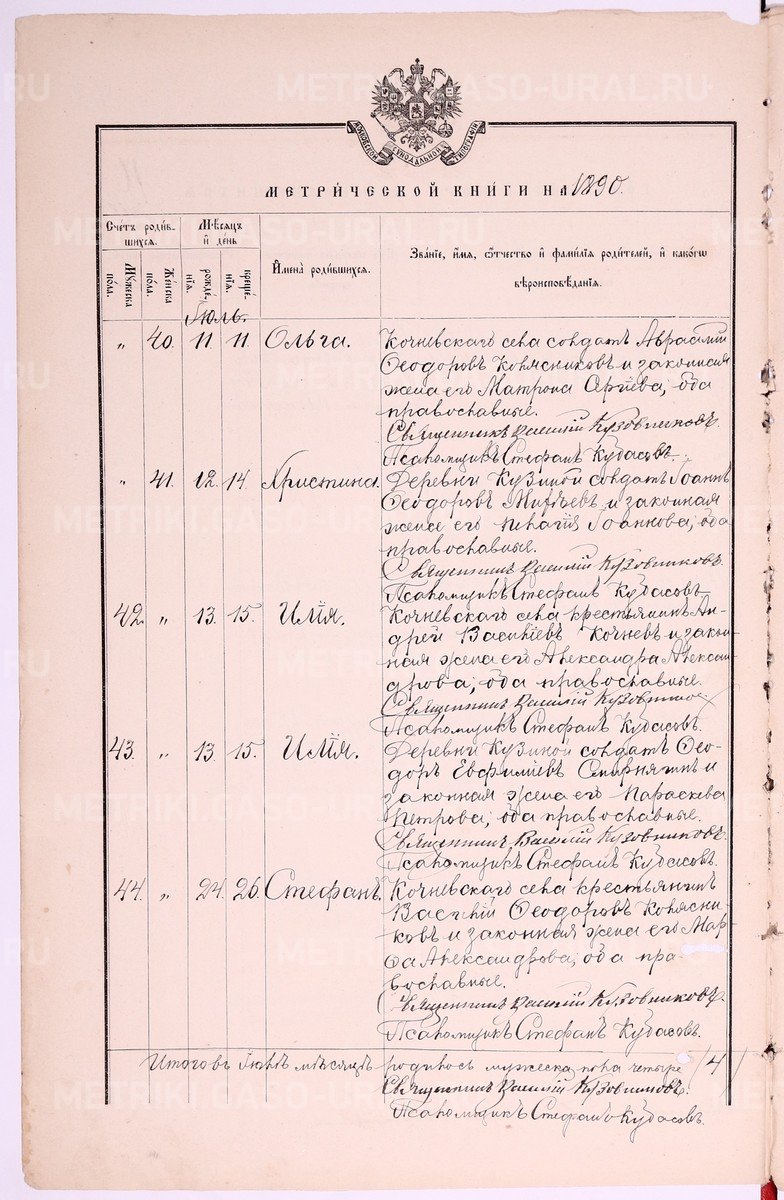 МОСКОВСКОЙ СѴНОДАЛЬНОЙ ТИПОГРАФІИ
МЕТРИ́ЧЕСКОЙ КНИ́ГИ НА 1890.
Сче́тъ роди́в-
шихся.
Мѣ́сяцъ
и҆ де́нь
Му́жеска по́ла.
Же́нска по́ла.
рожде́-нїя.
креще́-нїя.
И҆мена̀ роди́вшихся.
Зва́нїе, и҆́мя, ѻ҆́тчество и҆ фами́лїя роди́телей, и҆ како́гѡ
вѣроисповѣ́данїя.
Іюль.
„ 40. 11. 11. Ольга. Кочневскаго села солдатъ Аврамій
Ѳеодоровъ Колясниковъ и законная
жена его Матрона Сергіева; оба
православные.
Священникъ Василій Кузовниковъ.
Псаломщикъ Стефанъ Кубасовъ.
„ 41. 12. 14. Христина. Деревни Кузиной солдатъ Іоаннъ
Ѳеодоровъ и законная
жена его Пелагія Іоаннова; оба
православные.
Священникъ Василій Кузовниковъ.
Псаломщикъ Стефанъ Кубасовъ.
42. „ 13. 15. Илія. Кочневскаго села крестьянинъ Ан-
дрей Василіевъ Кочневъ и закон-
ная жена его Александра Алексан-
дрова; оба православные.
Священникъ Василій Кузовников
Псаломщикъ Стефанъ Кубасовъ.
43. „ 13. 15. Илія. Деревни Кузиной солдатъ Ѳео-
доръ Евфиміевъ и
законная жена его Параскева
Петрова; оба православные.
Священникъ Василій Кузовниковъ.
Псаломщикъ Стефанъ Кубасовъ.
44. „ 24. 26. Стефанъ. Кочневскаго села крестьянинъ
Василій Ѳеодоровъ Колясни-
ковъ и законная жена его Мар-
ѳа Александрова; оба пра-
вославные.
Священникъ Василій Кузовниковъ.
Псаломщикъ Стефанъ Кубасовъ.
Итого въ Іюлѣ мѣсяцѣ родилось мужеска пола четыре /4/
Священникъ Василій Кузовниковъ.
Псаломщикъ Стефанъ Кубасовъ.
METRIKI.GASO-URAL.RU